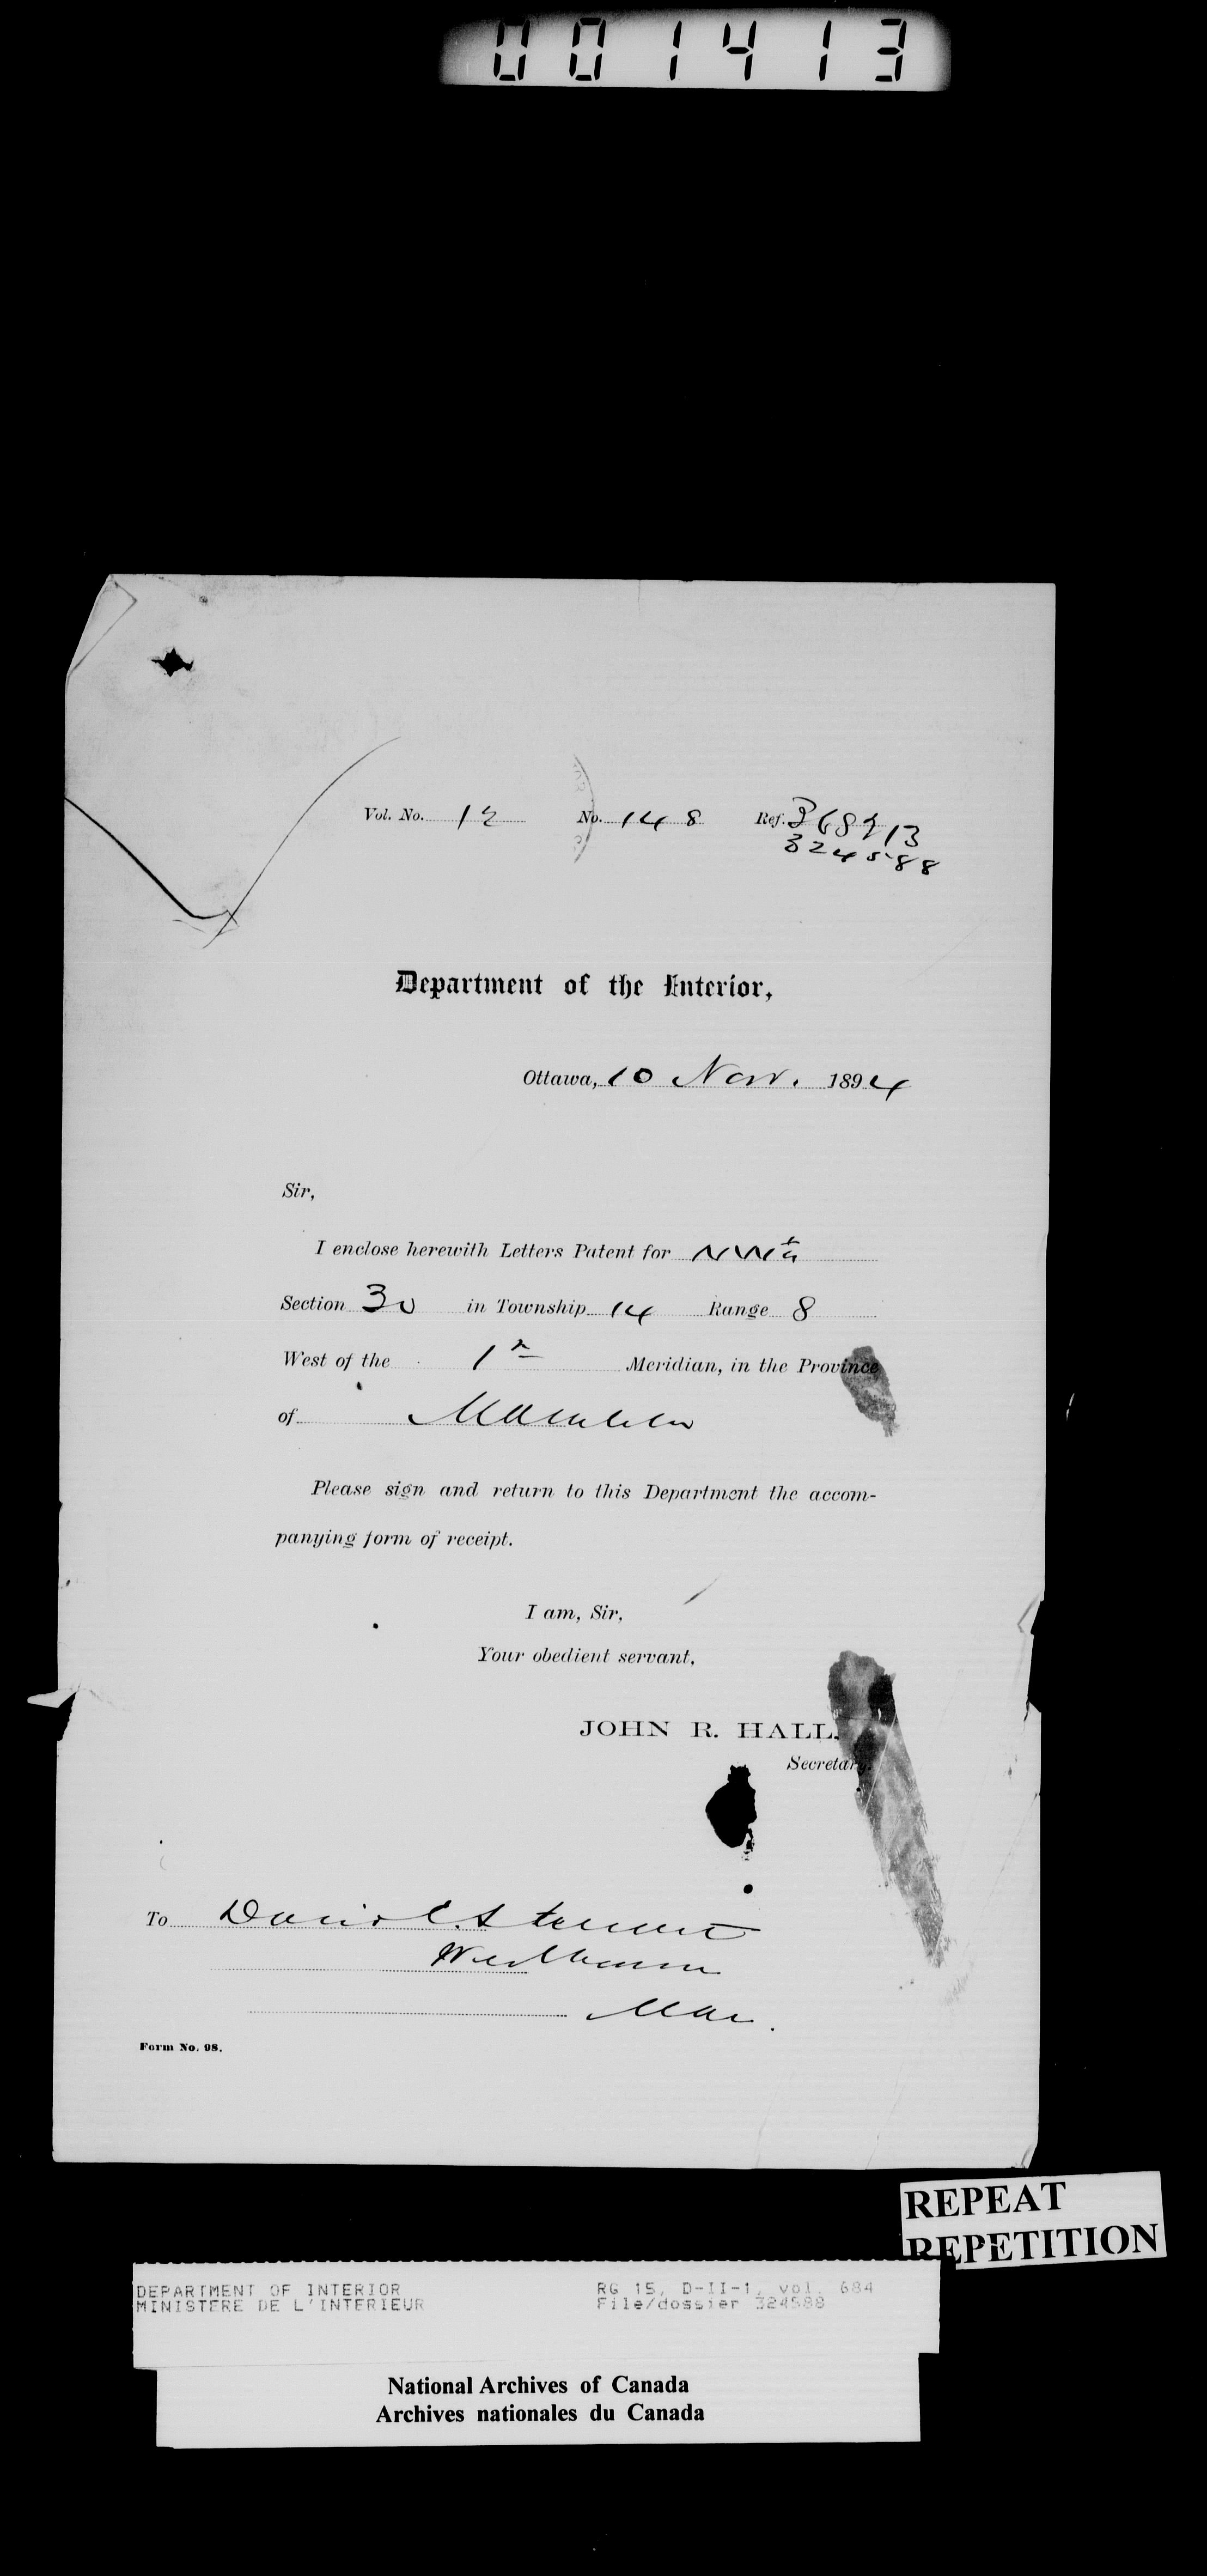 001413
Vol. No. 12 No. 148 Ref. 368913
324588
Department of the Interior,
Ottawa, 10 Nov. 1894
Sir,
I enclose herewith Letters Patent for NW¼
Section 30 in Township 14 Range 8
West of the 1st Meridian, in the Province
of Manitoba
Please sign and return to this Department the accom-
panying form of receipt.
I am, Sir,
Your obedient servant,
JOHN R. HALL,
Secretary.
To David C. Stewart
Westbourne
Man.
Form No. 98.
REPEAT
REPETITION
DEPARTMENT OF INTERIOR RG 15, D-II-1, vol. 684
MINISTERE DE L'INTERIEUR File/dossier 324588
National Archives of Canada
Archives nationales du Canada